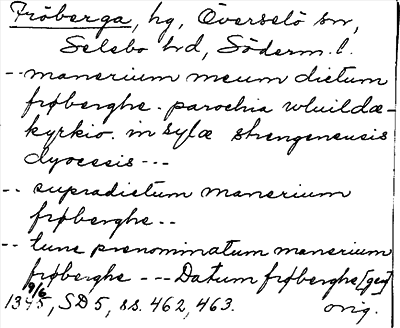 Fröberga, hg, Överselö sn,
Selebo hd, Söderm. l.
-- manerium meum dictum
frøberghe. parochia wluildæ-
kyrkio. in sylæ strengenensis
dyocesis ---
-- supradictum manerium
frøberghe --
-- tunc prenominatum manerium
frøberghe --- Datum frøberghe [gen]
1345 9/6, SD 5, ss. 462, 463. orig.